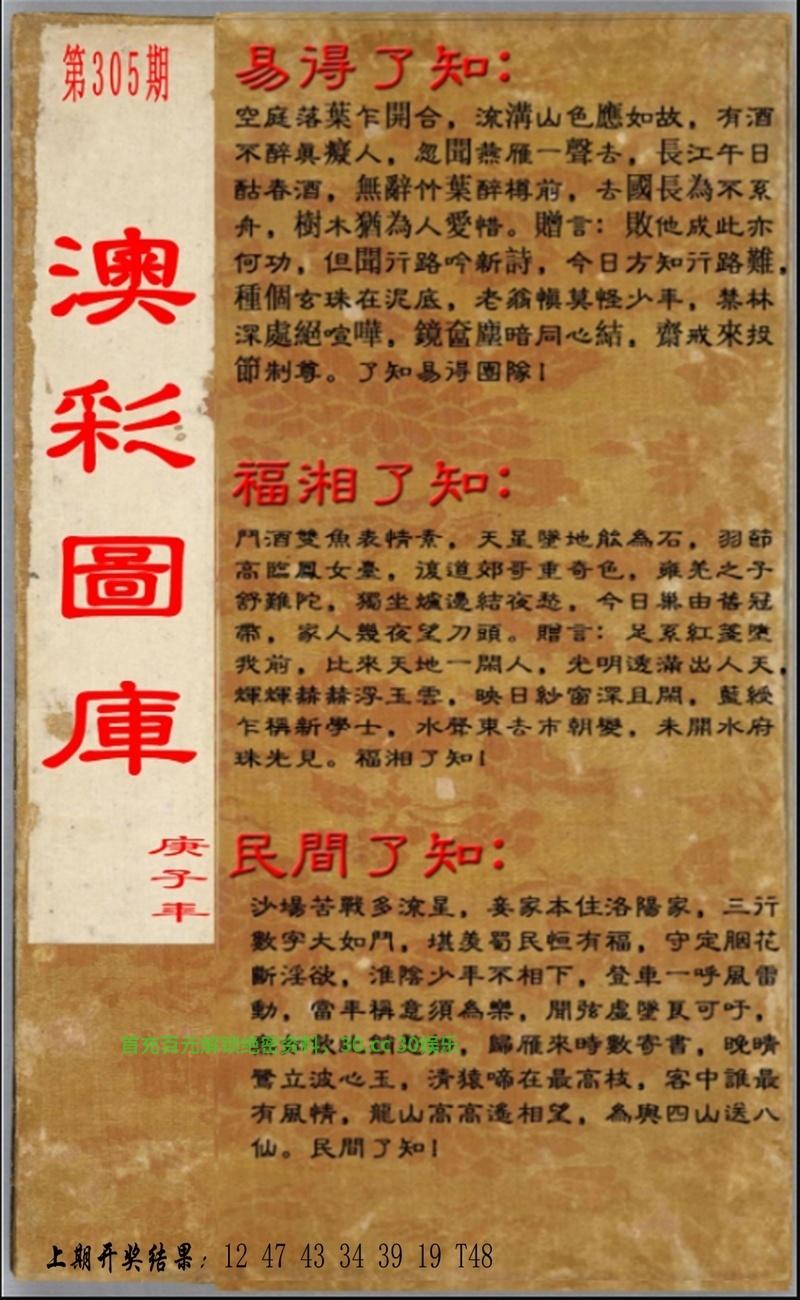 第305期
澳彩圖庫
庚子年
易得了知：
空庭落葉乍開合，流溝山色應如故，有酒
不醉真癡人，忽聞燕雁一聲去，長江午日
酤春酒，無辭竹葉醉樽前，去國長為不系
舟，樹木猶為人愛惜。贈言：敗他成此亦
何功，但聞行路吟新詩，今日方知行路難，
種個玄珠在泥底，老翁慎莫怪少年，禁林
深處絕喧嘩，鏡奩塵暗同心結，齋戒來投
節制尊。了知易得團隊！
福湘了知：
鬥酒雙魚表情素，天星墜地能為石，羽節
高臨鳳女臺，復道郊哥重奇色，雍羌之子
舒難陀，獨坐爐邊結夜愁，今日巢由舊冠
帶，家人幾夜望刀頭。贈言：足系紅箋墮
我前，比來天地一閑人，光明透滿出人天，
輝輝赫赫浮玉雲，映日紗窗深且閑，藍綬
乍稱新學士，水聲東去市朝變，未開水府
珠先見。福湘了知！
民間了知：
沙場苦戰多流星，妾家本住洛陽家，三行
數字大如鬥，堪羨蜀民恒有福，守定胭花
斷淫欲，淮陰少年不相下，登車一呼風雷
動，當年稱意須為樂，聞弦虛墜良可吁，
首充百元解锁绝密资料：30.cc 30娱乐
歸雁來時數寄書，晚晴
鷺立波心玉，清猿啼在最高枝，客中誰最
有風情，龍山高高遙相望，為與四山送八
仙。民間了知！
上期开奖结果：12 47 43 34 39 19 T48